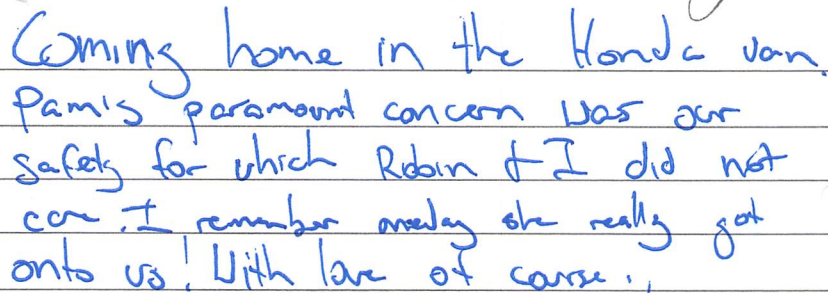 Coming home in the Honda van.
Pam's paramount concern was our
safety for which Robin & I did not
care. I remember oneday she really got
onto us! With love of course..